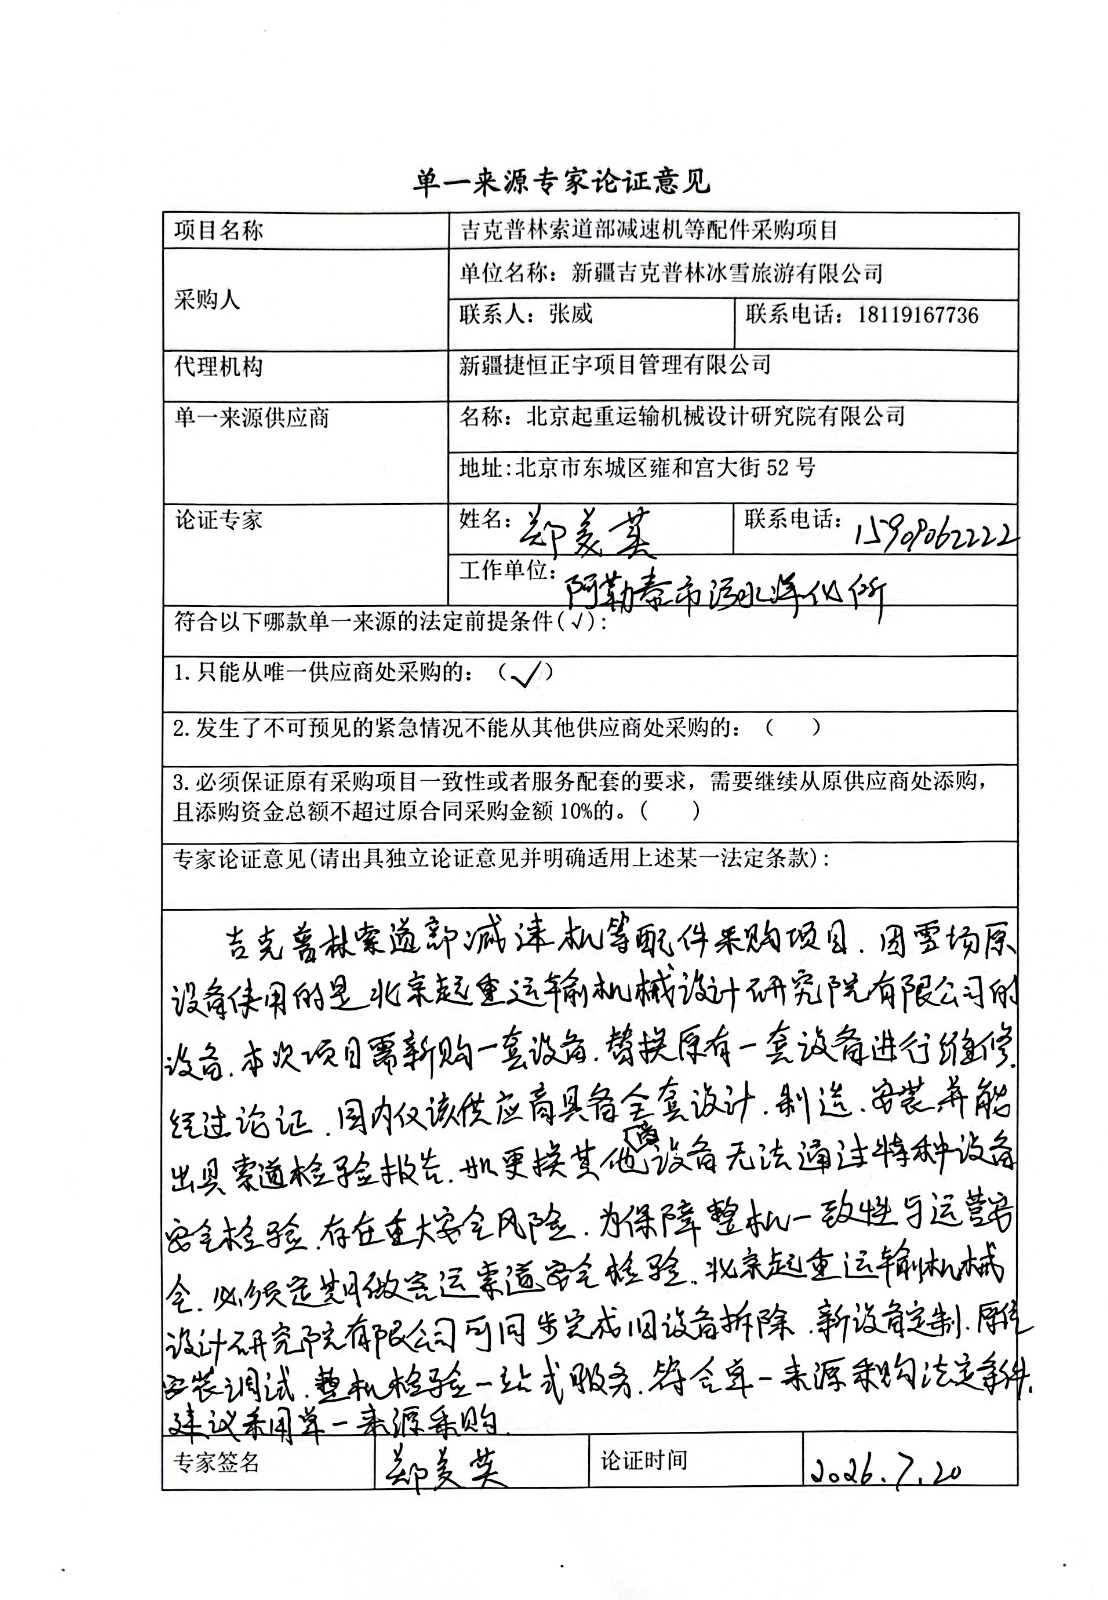 单一来源专家论证意见
项目名称 吉克普林索道部减速机等配件采购项目
采购人 单位名称：新疆吉克普林冰雪旅游有限公司
联系人：张威 联系电话：18119167736
代理机构 新疆捷恒正宇项目管理有限公司
单一来源供应商 名称：北京起重运输机械设计研究院有限公司
地址:北京市东城区雍和宫大街52号
论证专家 姓名：郑美英 联系电话：15909062222
工作单位：阿勒泰市污水净化所
符合以下哪款单一来源的法定前提条件(√)：
1.只能从唯一供应商处采购的：（✓）
2.发生了不可预见的紧急情况不能从其他供应商处采购的：（ ）
3.必须保证原有采购项目一致性或者服务配套的要求，需要继续从原供应商处添购，
且添购资金总额不超过原合同采购金额10%的。( )
专家论证意见(请出具独立论证意见并明确适用上述某一法定条款)：
吉克普林索道部减速机等配件采购项目．因雪场原
设备使用的是北京起重运输机械设计研究院有限公司的
设备．本次项目需新购一套设备．替换原有一套设备进行维修．
经过论证．国内仅该供应商具备全套设计．制造．安装并能
出具索道检验报告．如更换其他设备无法通过特种设备
安全检验．存在重大安全风险．为保障整机一致性与运营安
全．必须定期做客运索道安全检验．北京起重运输机械
设计研究院有限公司可同步完成旧设备拆除．新设备定制．原位
安装调试．整机检验一站式服务．符合单一来源采购法定条件．
建议采用单一来源采购．
专家签名 郑美英 论证时间 2026.7.20